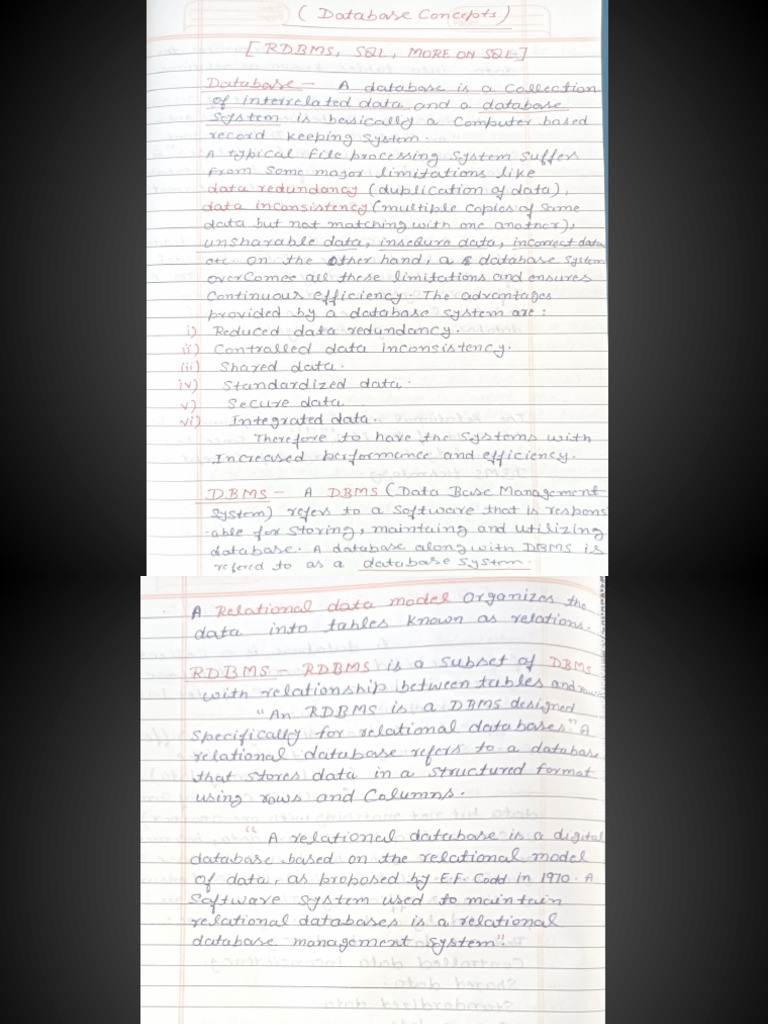 ( Database Concepts )
[ RDBMS, SQL, MORE ON SQL ]
Database - A database is a collection
of interrelated data and a database
system is basically a computer based
record keeping system.
A typical file processing system suffers
from some major limitations like
data redundancy (duplication of data),
data inconsistency (multiple copies of same
data but not matching with one another),
unsharable data, insecure data, incorrect data
etc. on the other hand, a database system
overcomes all these limitations and ensures
continuous efficiency. The advantages
provided by a database system are :
i) Reduced data redundancy.
ii) Controlled data inconsistency.
iii) Shared data.
iv) Standardized data.
v) Secure data
vi) Integrated data.
Therefore to have the systems with
Increased performance and efficiency.
DBMS - A DBMS (Data Base Management
System) refers to a software that is respons
-able for storing, maintaing and utilizing
database. A database along with DBMS is
refered to as a database system.
A Relational data model organizes the
data into tables known as relations.
RDBMS - RDBMS is a subset of DBMS
with relationship between tables and
"An RDBMS is a DBMS designed
specifically for relational databases" A
relational database refers to a database
that stores data in a structured format
using rows and columns.
" A relational database is a digital
database based on the relational model
of data, as proposed by E.F. Codd in 1970. A
software system used to maintain
relational databases is a relational
database management system".